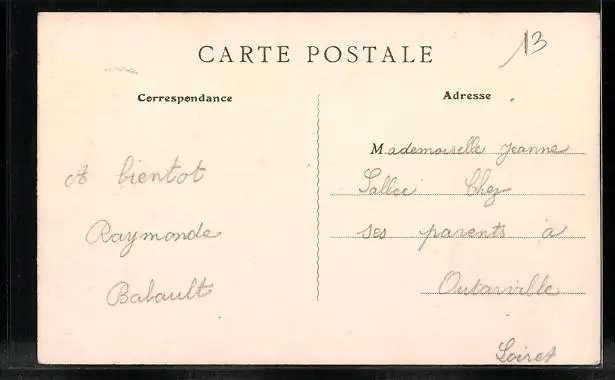 CARTE POSTALE
13
Correspondance
A bientot
Raymonde
Babault
Adresse
Mademoiselle Jeanne
Sallée Chez
ses parents à
Outarville
Loiret